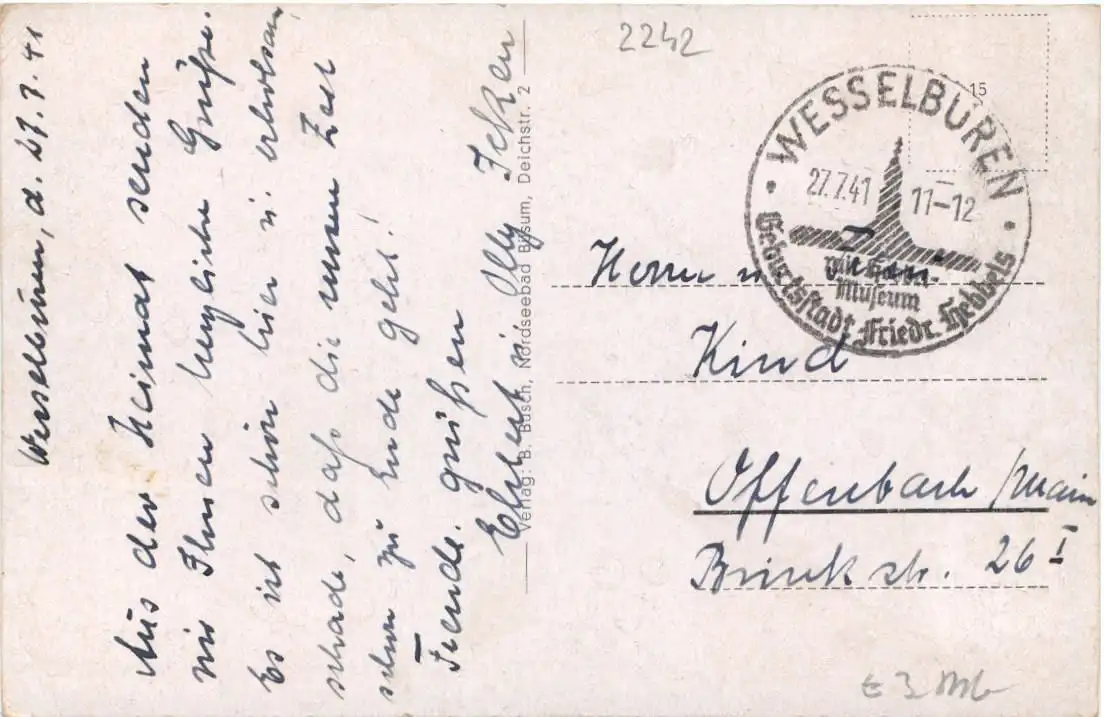 Wesselburen, d. 27.7.41
Aus der Heimat senden
wir Ihnen herzliche Grüße.
Es ist schön hier u. erholsam,
schade, daß die Zeit
schon zu Ende geht!
grüßen
u. Olly
Verlag: B. Busch, Nordseebad Büsum, Deichstr. 2
2242
15
WESSELBUREN
27.7.41 11-12
Museum
Geburtsstadt Friedr. Hebbels
Herrn u. Frau
Kind
Offenbach /Main
str. 26 I